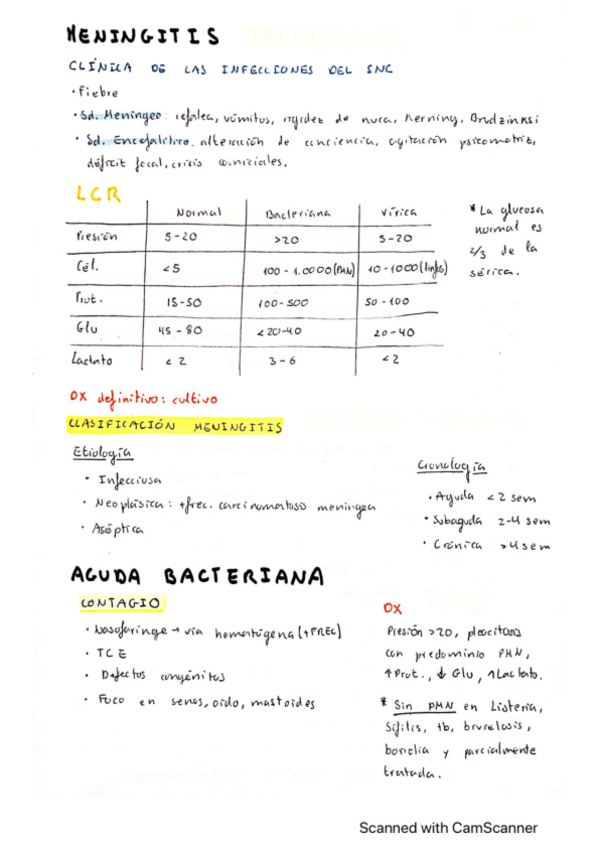 MENINGITIS
CLÍNICA DE LAS INFECCIONES DEL SNC
· Fiebre
· Sd. Meníngeo: cefalea, vómitos, rigidez de nuca, Kerning, Brudzinski
· Sd. Encefalítico: alteración de conciencia, agitación psicomotriz,
déficit focal, crisis comiciales.
LCR
Normal Bacteriana Vírica
Presión 5-20 >20 5-20
Cél. <5 100-1.0000 (PMN) 10-1000 (linfos)
Prot. 15-50 100-500 50-100
Glu 45-80 <20-40 20-40
Lactato <2 3-6 <2
* La glucosa
normal es
2/3 de la
sérica.
DX definitivo: cultivo
CLASIFICACIÓN MENINGITIS
Etiología
· Infecciosa
· Neoplásica: +frec. carcinomatosa meníngea
· Aséptica
Cronología
· Aguda <2 sem
· Subaguda 2-4 sem
· Crónica >4 sem
AGUDA BACTERIANA
CONTAGIO
· Nasofaringe → vía hematógena (+FREC)
· TCE
· Defectos congénitos
· Foco en senos, oído, mastoides
DX
Presión >20, pleocitosis
con predominio PMN,
↑Prot., ↓Glu, ↑Lactato.
* Sin PMN en Listeria,
Sífilis, tb, brucelosis,
borrelia y parcialmente
tratada.
Scanned with CamScanner